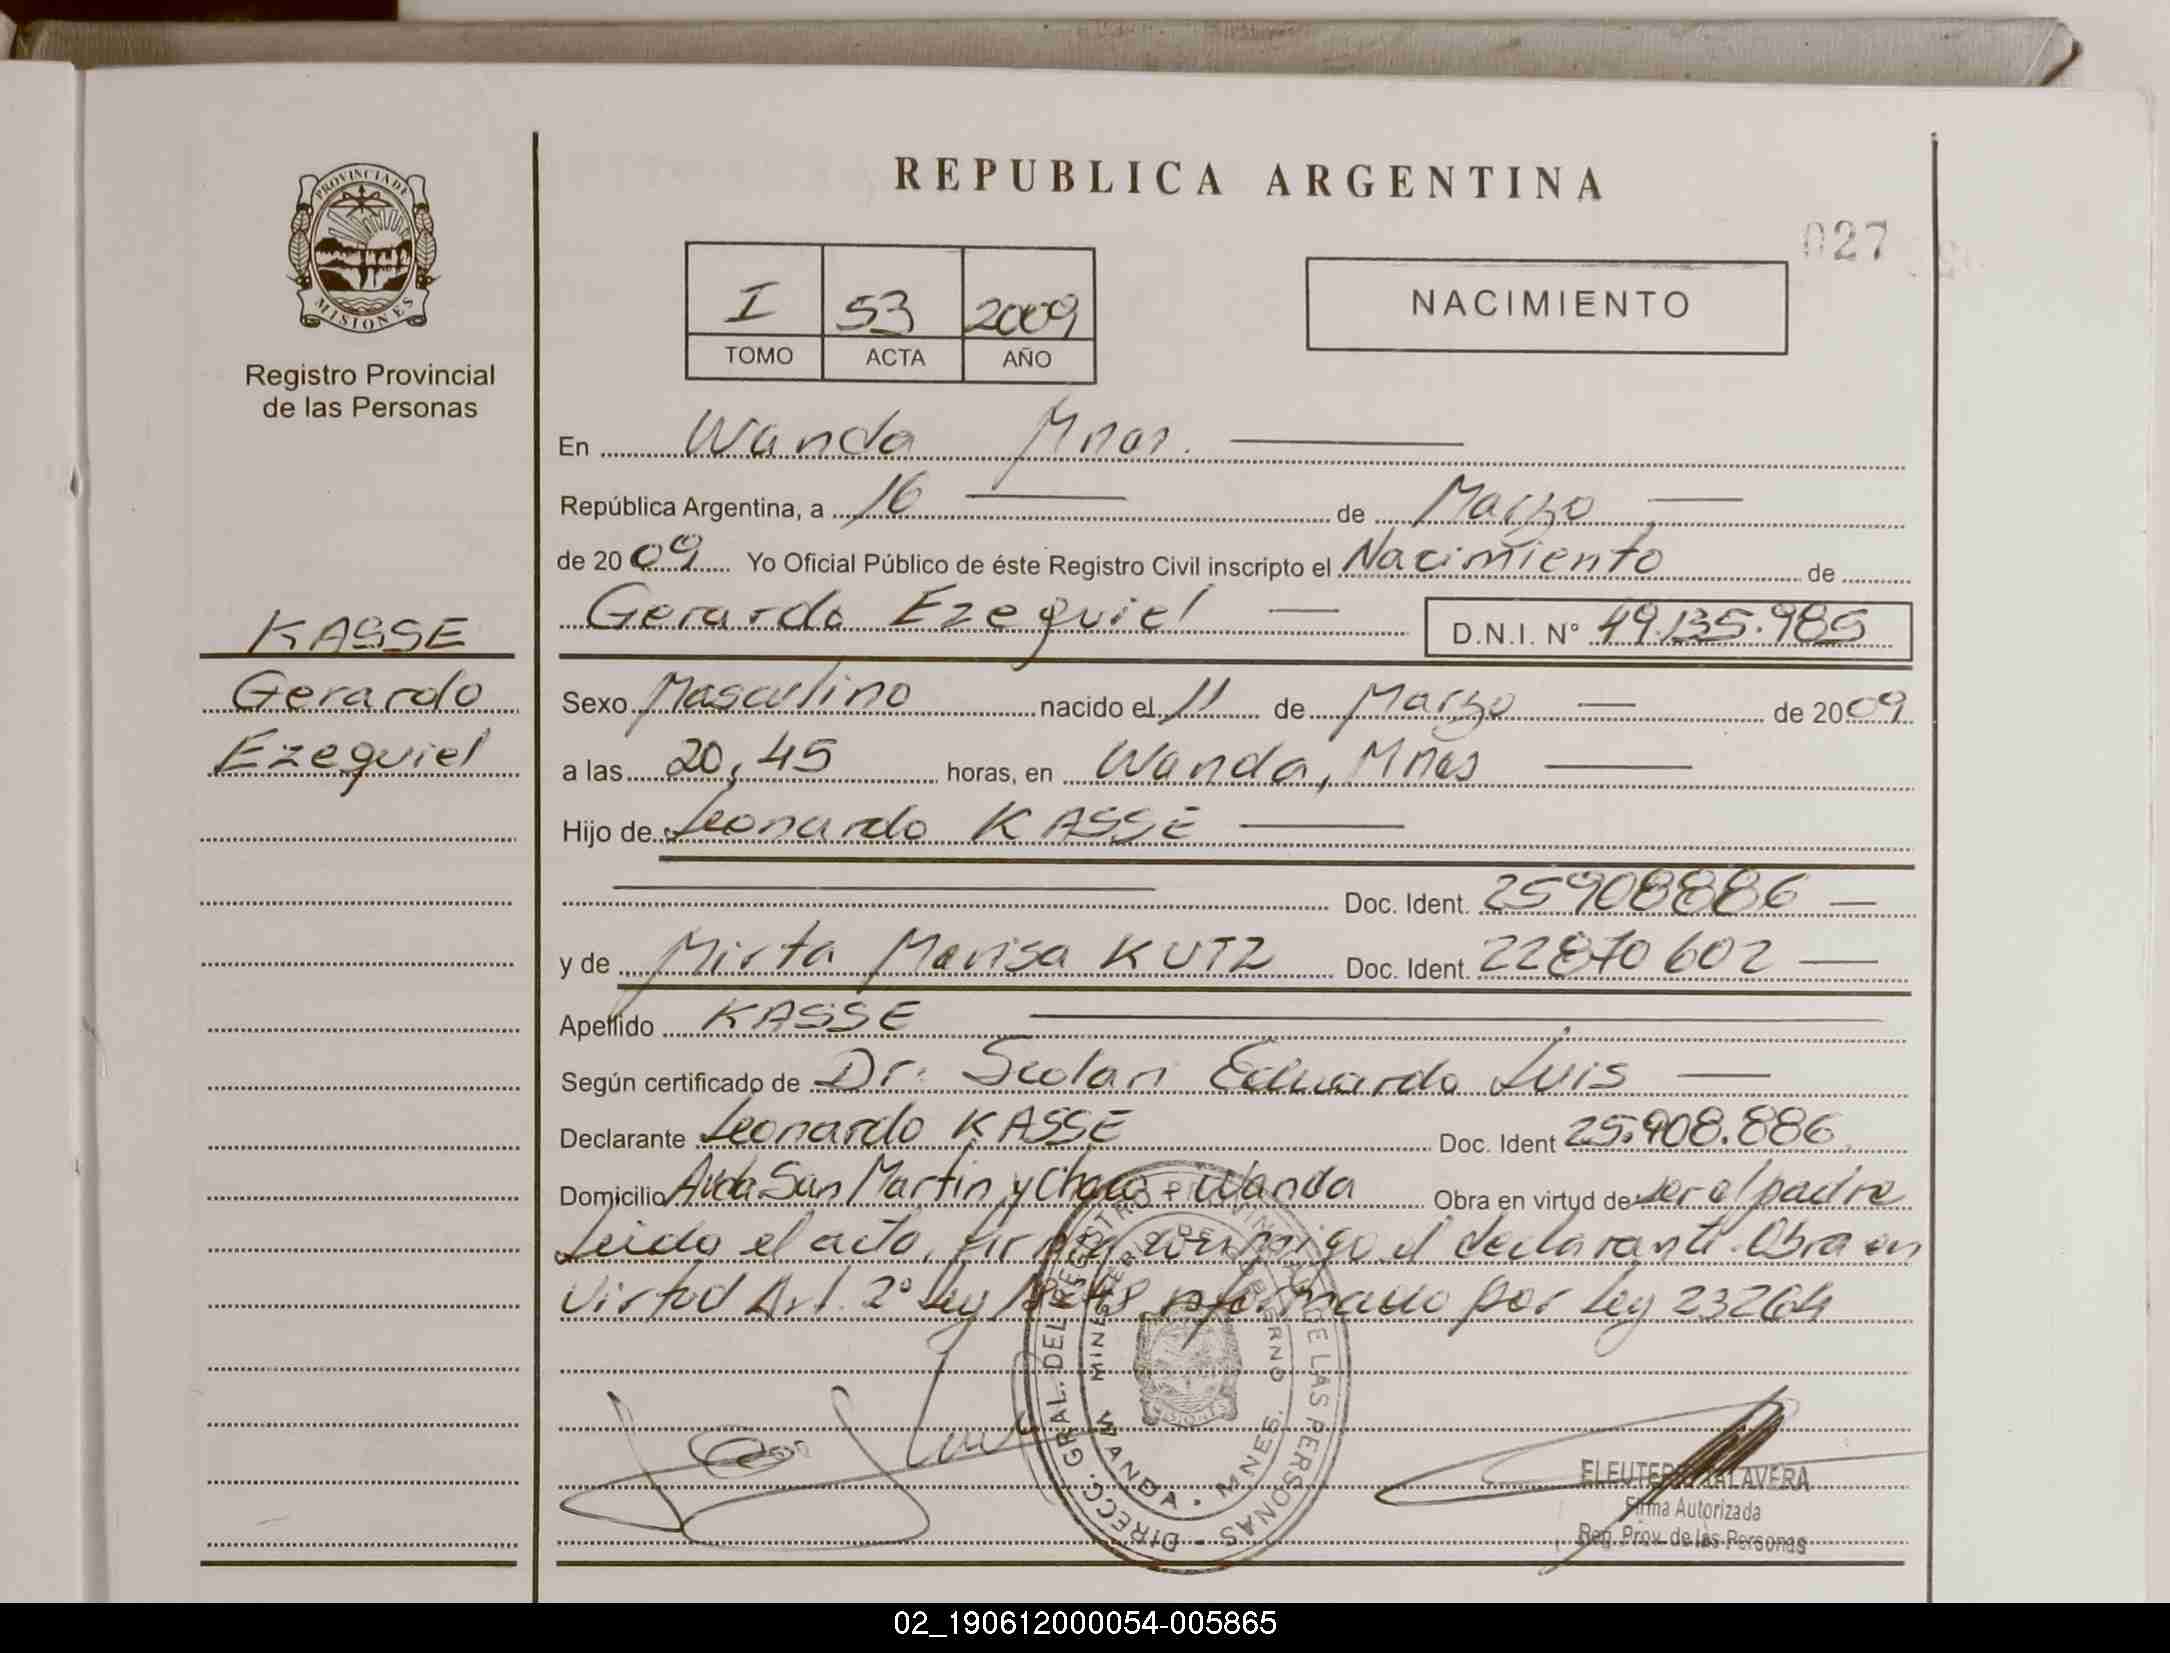 REPUBLICA ARGENTINA
027
PROVINCIA DE
MISIONES
Registro Provincial
de las Personas
I 53 2009
TOMO ACTA AÑO
NACIMIENTO
En Wanda Mnes.
República Argentina, a 16 de Marzo
de 2009 Yo Oficial Público de éste Registro Civil inscripto el Nacimiento de
Gerardo Ezequiel D.N.I. N° 49.135.985
KASSE
Gerardo
Ezequiel
Sexo Masculino nacido el 11 de Marzo de 2009
a las 20,45 horas, en Wanda, Mnes
Hijo de Leonardo KASSE
Doc. Ident. 25908886
y de Mirta Marisa KUTZ Doc. Ident. 22870602
Apellido KASSE
Según certificado de Dr. Scolari Eduardo Luis
Declarante Leonardo KASSE Doc. Ident 25.908.886
Domicilio Avda San Martin y Chaco - Wanda Obra en virtud de ser el padre
Leido el acta, firma conmigo el declarante. Obra en
Virtud Art. 2° Ley 18248 reformado por Ley 23264
DIRECC. GRAL. DEL REGISTRO PROVINCIAL DE LAS PERSONAS
MINISTERIO DE GOBIERNO
WANDA - MNES.
MISIONES
ELEUTERIO TALAVERA
Firma Autorizada
Reg. Prov. de las Personas
02_190612000054-005865